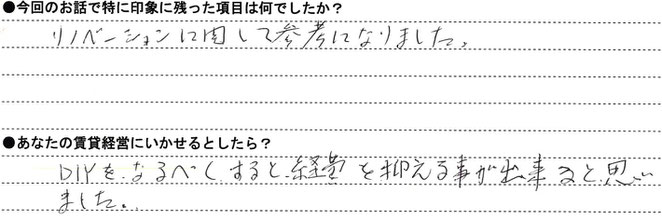 ●今回のお話で特に印象に残った項目は何でしたか？
リノベーションに関して参考になりました。
●あなたの賃貸経営にいかせるとしたら？
DIYをなるべくすると、経営を抑える事が出来ると思い
ました。